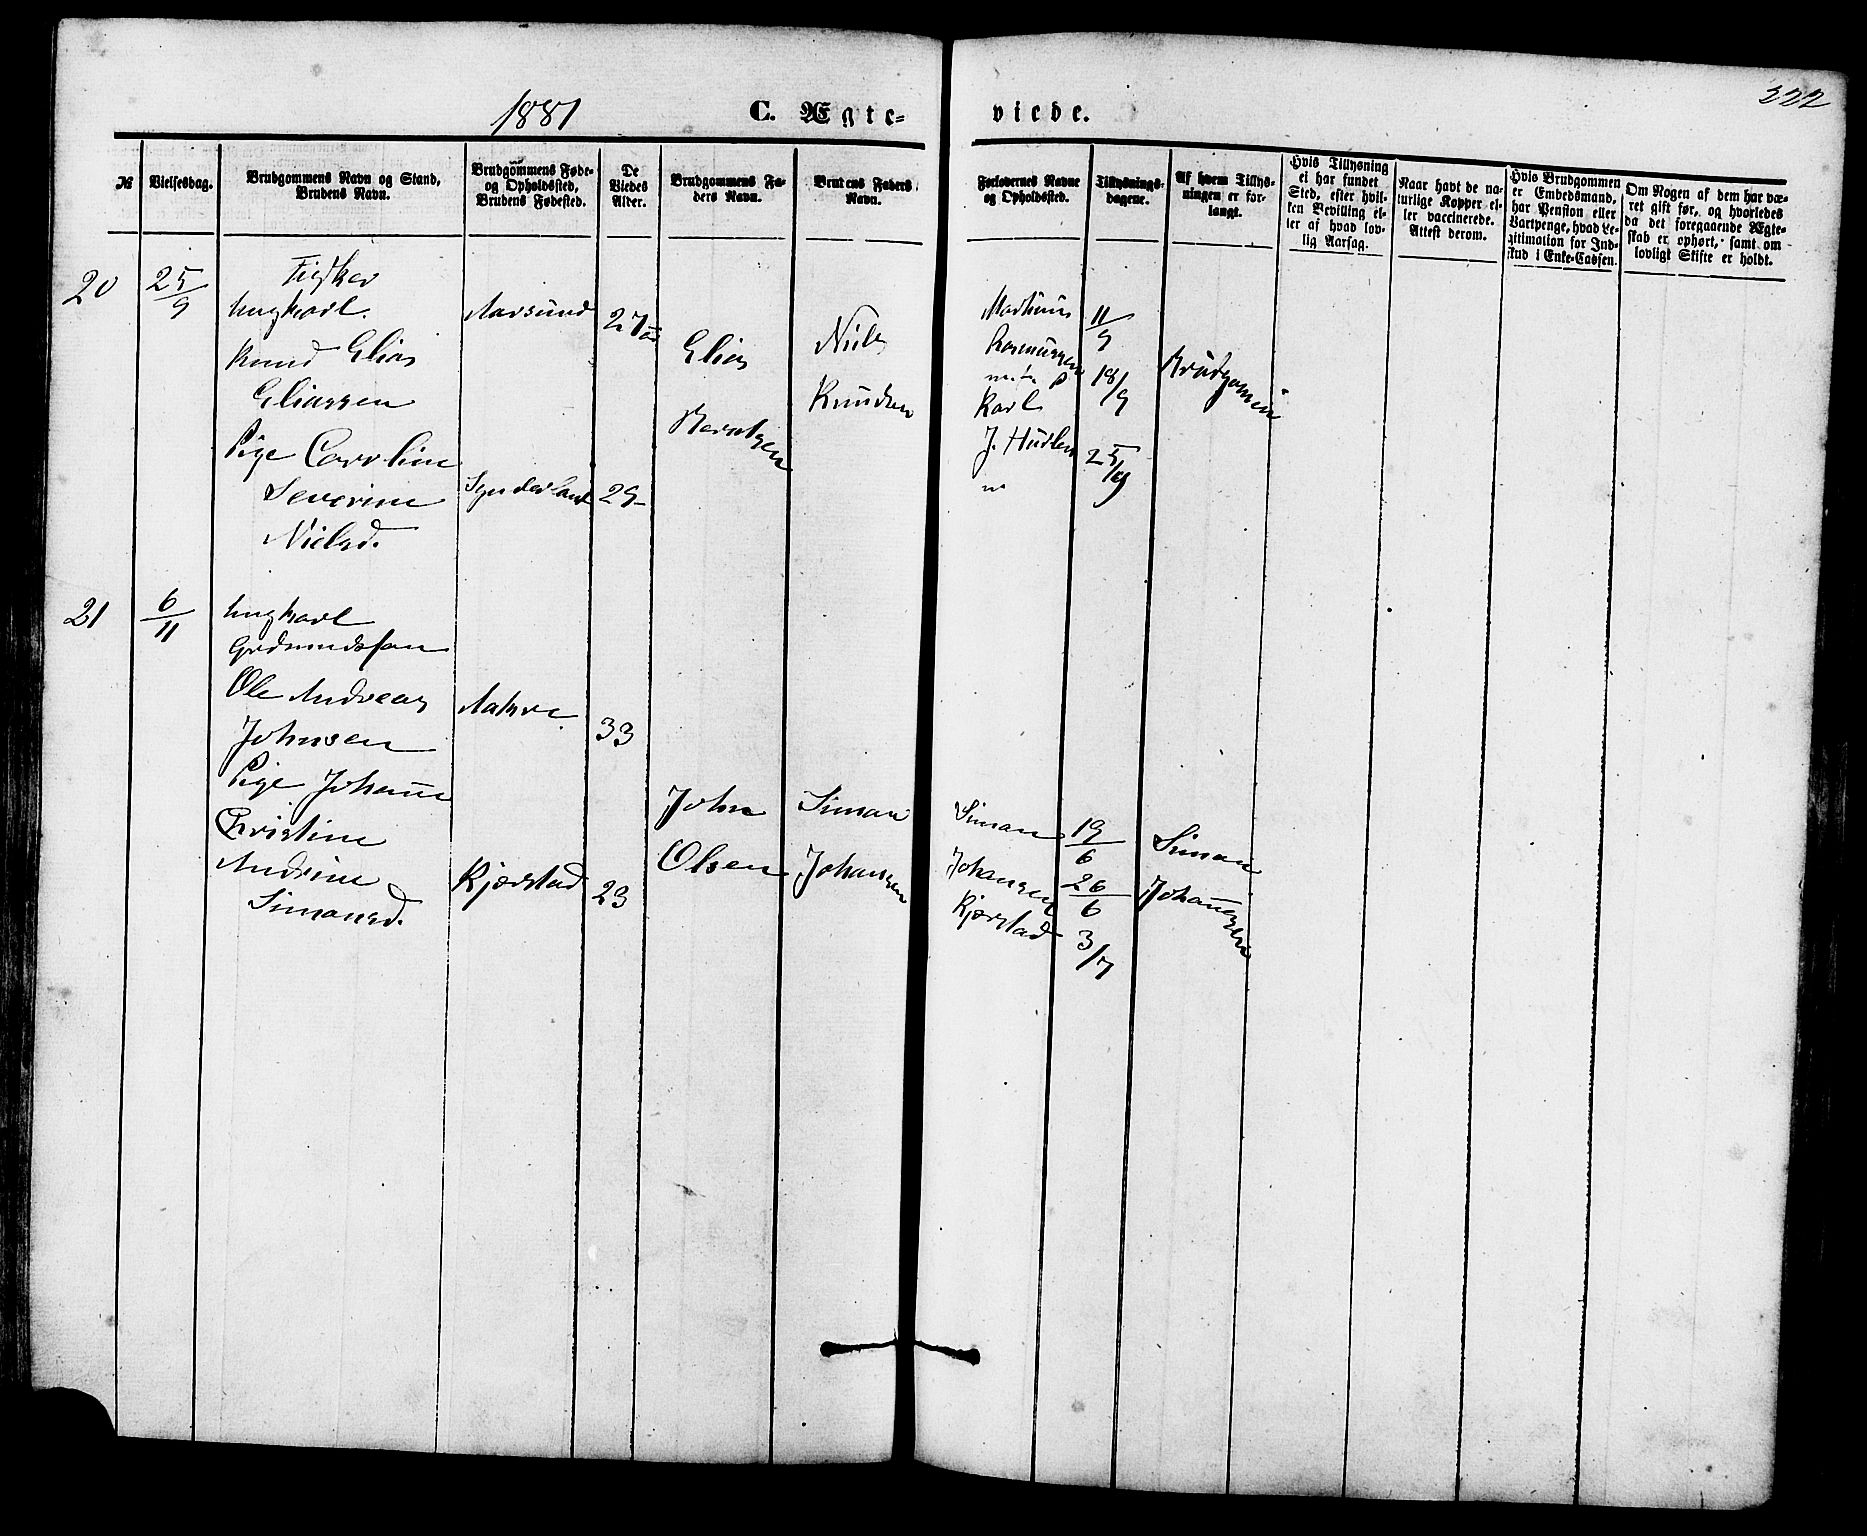 1881
C. Ægte-
viede.
222
№
Vielsesdag.
Brudgommens Navn og Stand,
Brudens Navn.
Brudgommens Føde-
og Opholdssted,
Brudens Fødested.
De
Viedes
Alder.
Brudgommens Fa-
ders Navn.
Brudens Faders
Navn.
Forlovernes Navne
og Opholdssted.
Tillysnings-
dagene.
Af hvem Tillys-
ningen er for-
langt.
Hvis Tillysning
ei har fundet
Sted, efter hvil-
ken Bevilling el-
ler af hvad lov-
lig Aarsag.
Naar havt de na-
turlige Kopper el-
ler vaccinerede.
Attest derom.
Hvis Brudgommen
er Embedsmand,
har Pension eller
Vartpenge, hvad Le-
gitimation for Ind-
skud i Enke-Cassen.
Om Nogen af dem har væ-
ret gift før, og hvorledes
da det foregaaende Ægte-
skab er ophørt, samt om
lovligt Skifte er holdt.
20
25/9
Fisker
Ungkarl
Knud Elias
Eliassen
Pige Caroline
Severine
Nielsd.
Aarsund
Synderland
27
29
Elias
Berntsen
Niels
Knudsen
Rasmussen
Karl
J. Hurlen
11/9
18/9
25/9
Brudgommen
21
6/11
Ungkarl
Ole Andreas
Johnsen
Pige Johanne
Christine
Andrine
Simonsd.
Aakre
Kjørstad
33
23
John
Olsen
Simon
Johansen
Simon
Johansen
Kjørstad
19/6
26/6
3/7
Simon
Johannesen